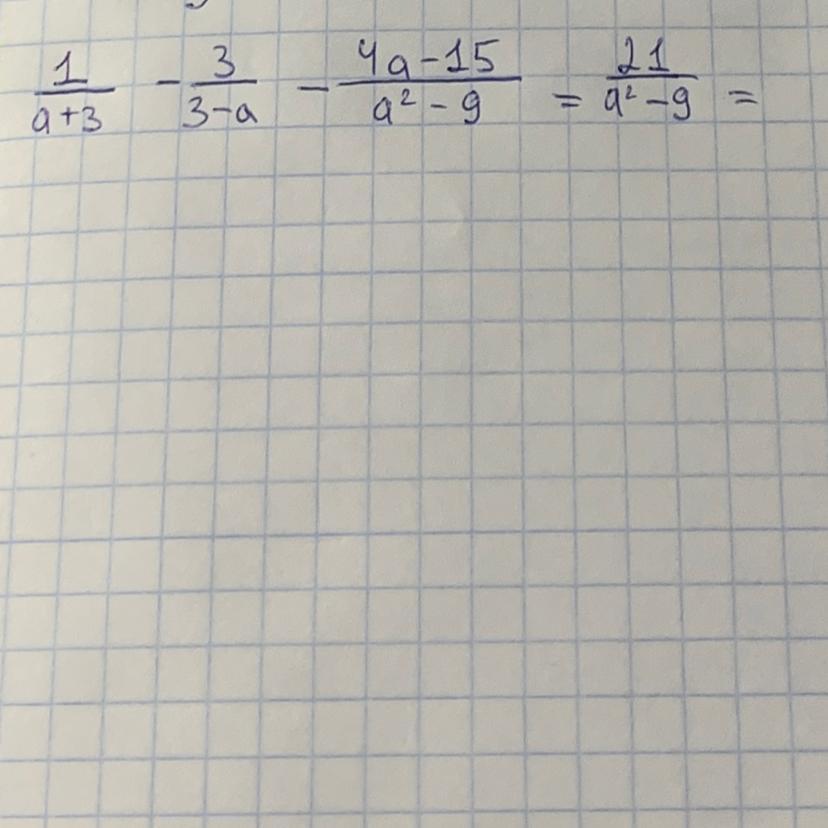 1/(a+3) - 3/(3-a) - (4a-15)/(a²-9) = 21/(a²-9) =